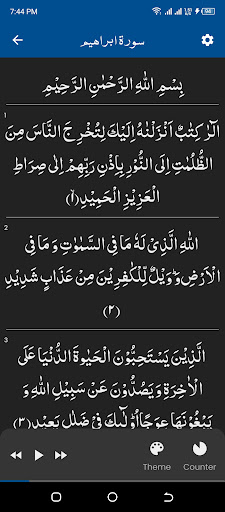 7:44 PM
سورة ابراهيم
بِسْمِ اللهِ الرَّحْمٰنِ الرَّحِيْمِ
1
الٓرٰ كِتٰبٌ اَنْزَلْنٰهُ اِلَيْكَ لِتُخْرِجَ النَّاسَ مِنَ
الظُّلُمٰتِ اِلَى النُّوْرِ بِاِذْنِ رَبِّهِمْ اِلٰى صِرَاطِ
الْعَزِيْزِ الْحَمِيْدِ(۱)
2
اللهِ الَّذِىْ لَهٗ مَا فِى السَّمٰوٰتِ وَمَا فِى
الْاَرْضِ وَوَيْلٌ لِّلْكٰفِرِيْنَ مِنْ عَذَابٍ شَدِيْدِ
(۲)
3
الَّذِيْنَ يَسْتَحِبُّوْنَ الْحَيٰوةَ الدُّنْيَا عَلَى
الْاٰخِرَةِ وَيَصُدُّوْنَ عَنْ سَبِيْلِ اللهِ وَ
يَبْغُوْنَهَا عِوَجًا اُولٰٓئِكَ فِىْ ضَلٰلٍ بَعِيْدٍ(۳)
Theme Counter